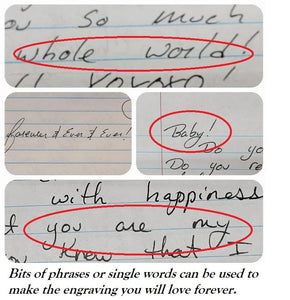 So much
whole world!
forever & Ever & Ever!
Baby!
Do yo
Do you re
with happiness
you are my
Knew that I
Bits of phrases or single words can be used to
make the engraving you will love forever.